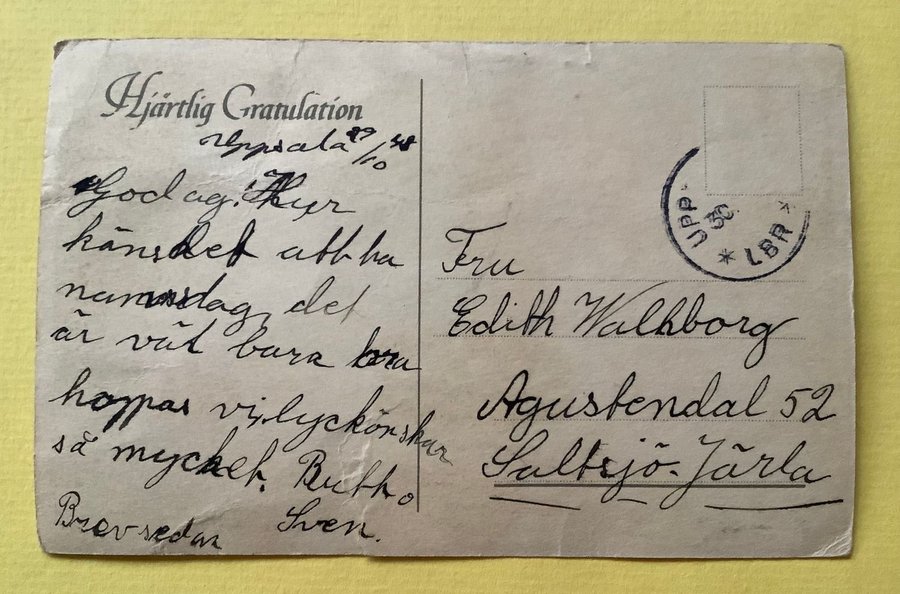 Hjärtlig Gratulation
Uppsala 29/10 48
Godag. Hur
känsdet att ha
namnsdag det
är vät bara bra
hoppas vi, lyckönskar
så mycket. Butt o
Sven.
Brev sedan
UPP
LBR
Fru
Edith Walhborg
Agustendal 52
Saltsjö-Järla